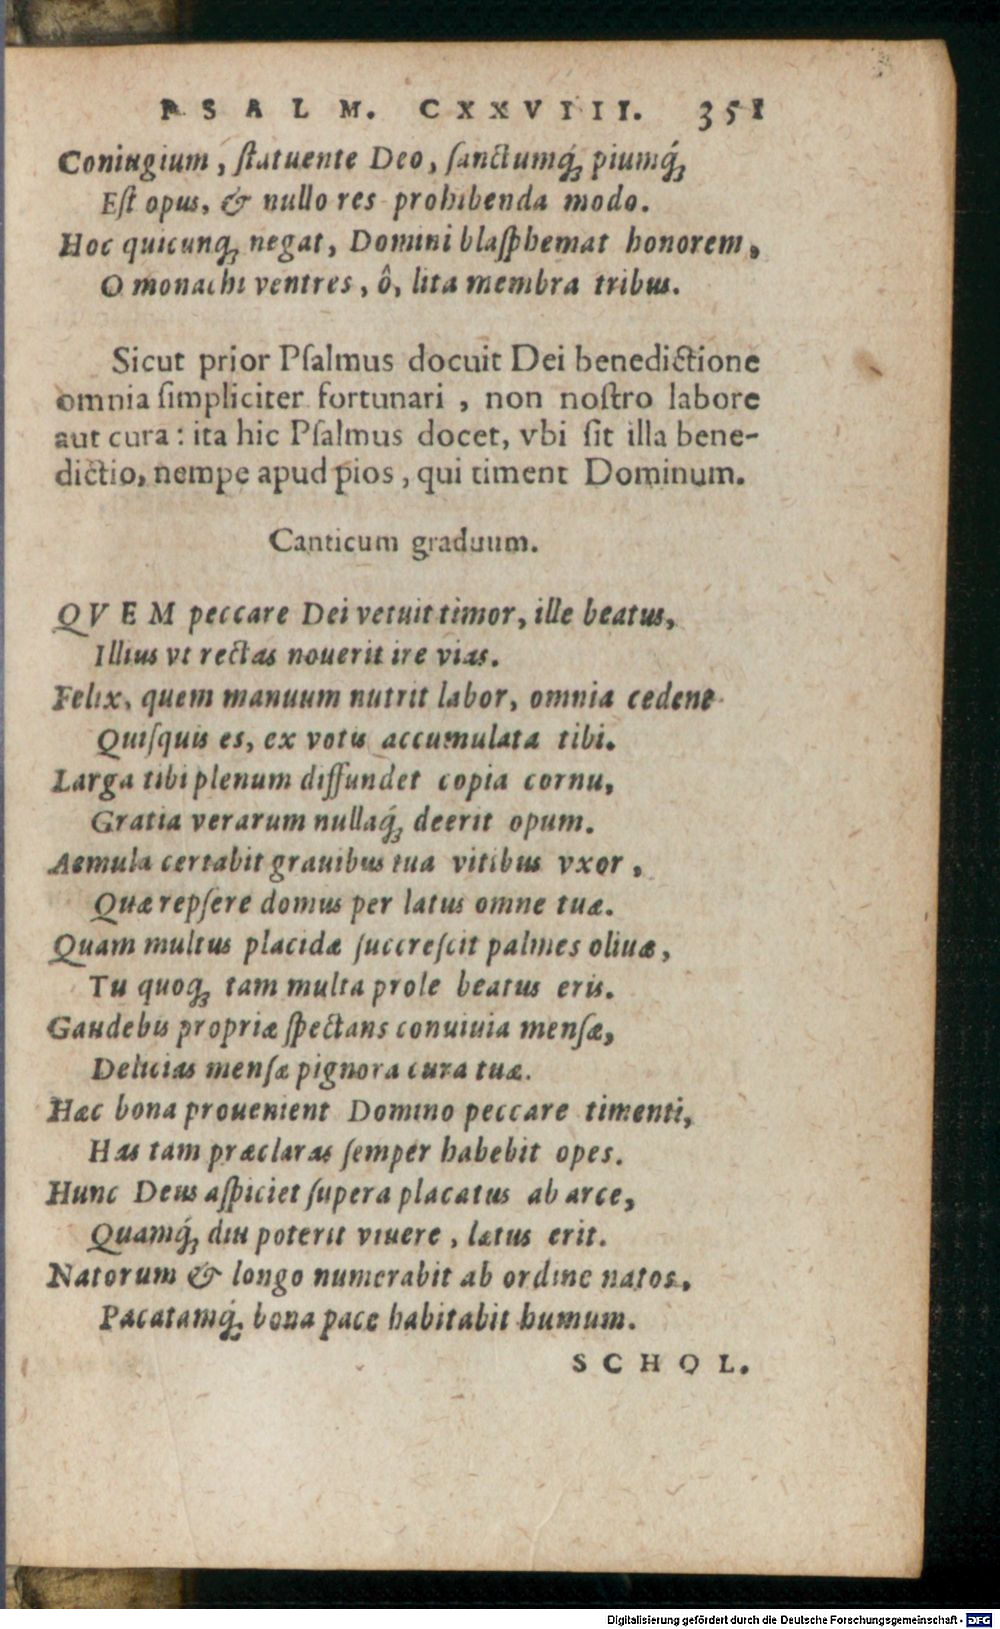 PSALM. CXXVIII. 351
Coniugium, ſtatuente Deo, ſanctumq́; piumq́;
Eſt opus, & nullo res prohibenda modo.
Hoc quicunq; negat, Domini blaſphemat honorem,
O monachi ventres, ô, lita membra tribus.
Sicut prior Pſalmus docuit Dei benedictione
omnia ſimpliciter fortunari, non noſtro labore
aut cura: ita hic Pſalmus docet, vbi ſit illa bene-
dictio, nempe apud pios, qui timent Dominum.
Canticum graduum.
QVEM peccare Dei vetuit timor, ille beatus,
Illius vt rectas nouerit ire vias.
Felix, quem manuum nutrit labor, omnia cedent
Quiſquis es, ex votis accumulata tibi.
Larga tibi plenum diffundet copia cornu,
Gratia verarum nullaq́; deerit opum.
Aemula certabit grauibus tua vitibus vxor,
Quæ repſere domus per latus omne tuæ.
Quam multus placidæ ſuccreſcit palmes oliuæ,
Tu quoq; tam multa prole beatus eris.
Gaudebis propriæ ſpectans conuiuia menſæ,
Delicias menſæ pignora cara tuæ.
Hæc bona prouenient Domino peccare timenti,
Has tam præclaras ſemper habebit opes.
Hunc Deus aſpiciet ſupera placatus ab arce,
Quamq́; diu poterit viuere, lætus erit.
Natorum & longo numerabit ab ordine natos,
Pacatamq́; bona pace habitabit humum.
SCHOL.
Digitalisierung gefördert durch die Deutsche Forschungsgemeinschaft - DFG